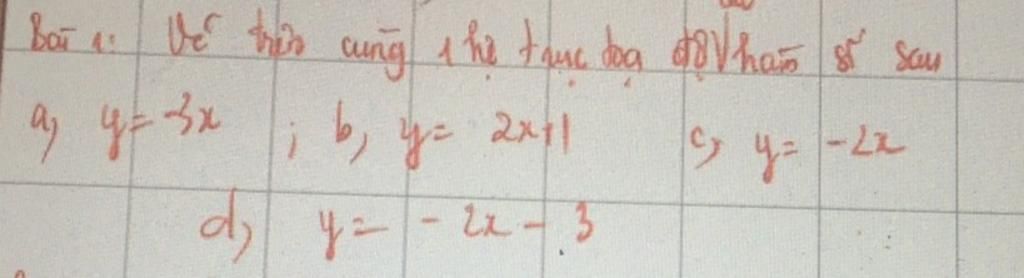 Bài 1: Vẽ trên cùng 1 hệ trục tọa độ các hàm số sau
a, y = -3x ; b, y = 2x+1 c, y = -2x
d, y = -2x - 3